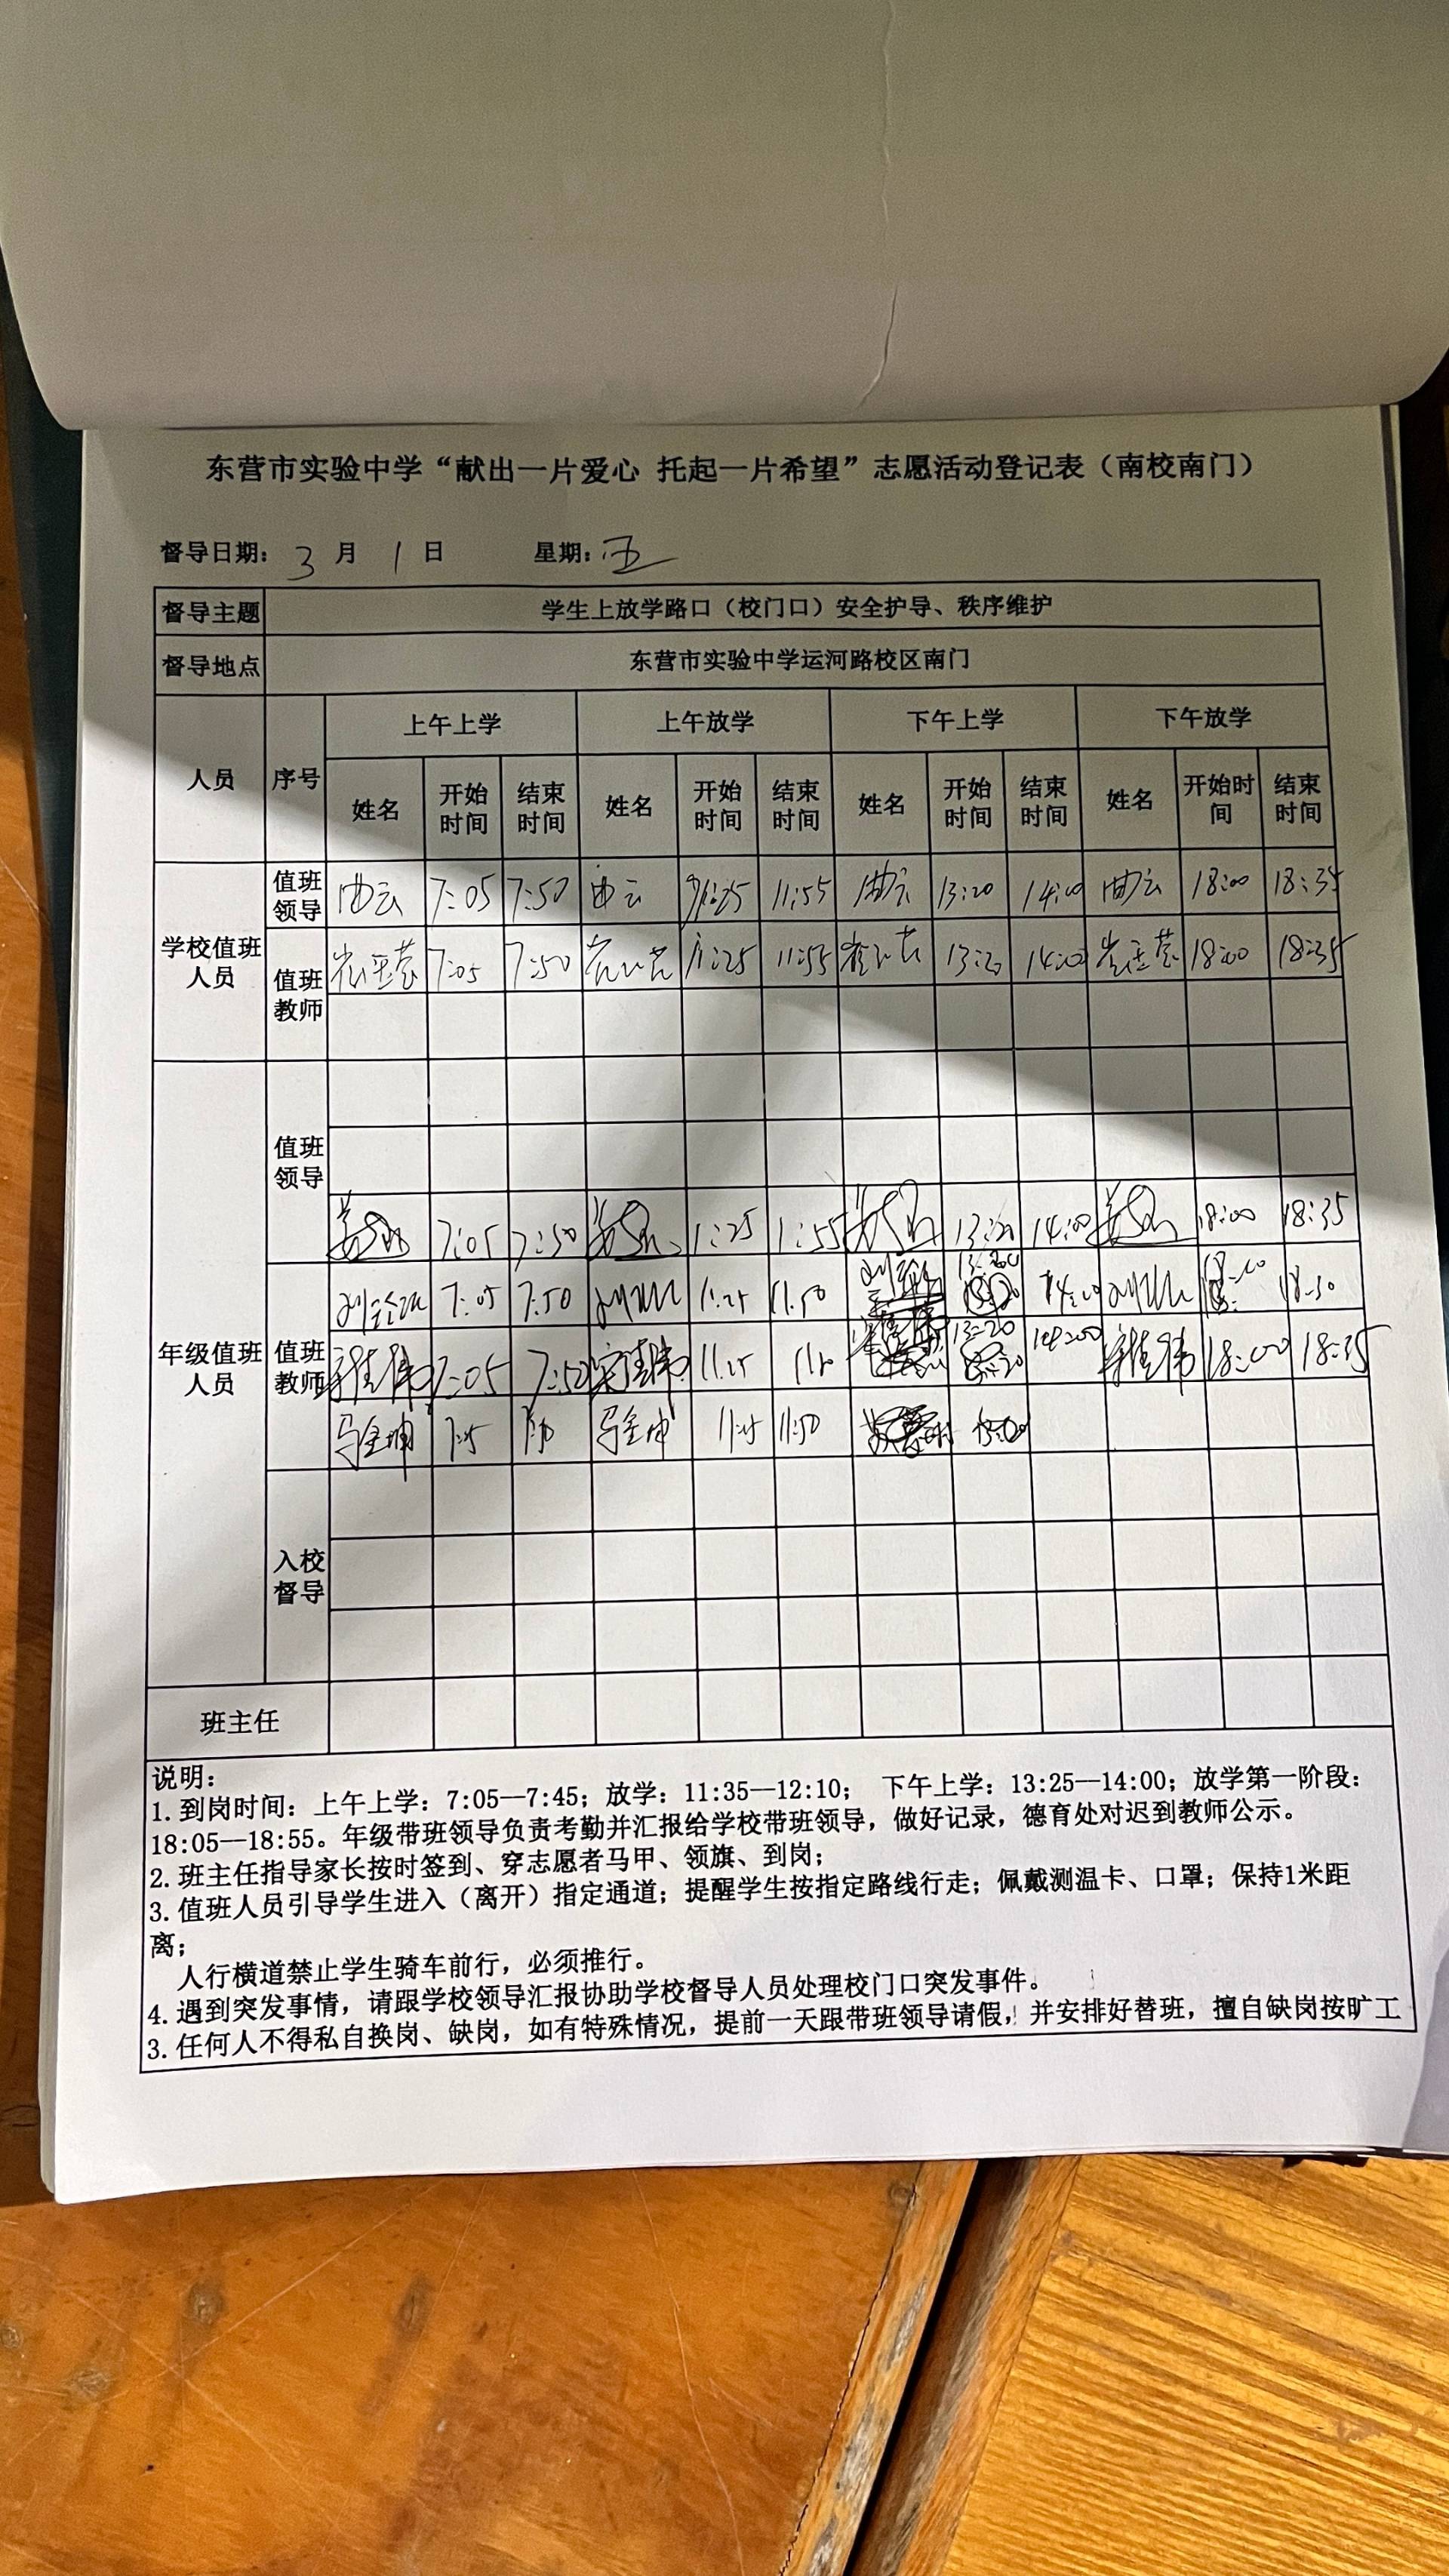 东营市实验中学“献出一片爱心 托起一片希望”志愿活动登记表（南校南门）
督导日期: 3 月 1 日 星期: 五
督导主题 学生上放学路口（校门口）安全护导、秩序维护
督导地点 东营市实验中学运河路校区南门
人员 序号 上午上学 上午放学 下午上学 下午放学
姓名 开始时间 结束时间 姓名 开始时间 结束时间 姓名 开始时间 结束时间 姓名 开始时间 结束时间
学校值班人员
值班领导 曲云 7:05 7:50 曲云 11:55 曲云 13:20 14:00 曲云 18:00 18:35
值班教师 7:05 7:50 11:25 11:55 13:20 14:00 18:00 18:35
年级值班人员
值班领导
7:05 7:50 11:25 11:55 13:20 14:00 18:00 18:35
值班教师
7:05 7:50 11:25 11:50 14:00 18:30
7:05 7:50 11:25 13:20 14:00 18:00 18:35
马金坤 马金坤 11:50
入校督导
班主任
说明:
1.到岗时间: 上午上学: 7:05—7:45; 放学: 11:35—12:10; 下午上学: 13:25—14:00; 放学第一阶段:
18:05—18:55。年级带班领导负责考勤并汇报给学校带班领导，做好记录，德育处对迟到教师公示。
2.班主任指导家长按时签到、穿志愿者马甲、领旗、到岗;
3.值班人员引导学生进入（离开）指定通道; 提醒学生按指定路线行走; 佩戴测温卡、口罩; 保持1米距
离;
人行横道禁止学生骑车前行，必须推行。
4.遇到突发事情，请跟学校领导汇报协助学校督导人员处理校门口突发事件。
3.任何人不得私自换岗、缺岗，如有特殊情况，提前一天跟带班领导请假，并安排好替班，擅自缺岗按旷工